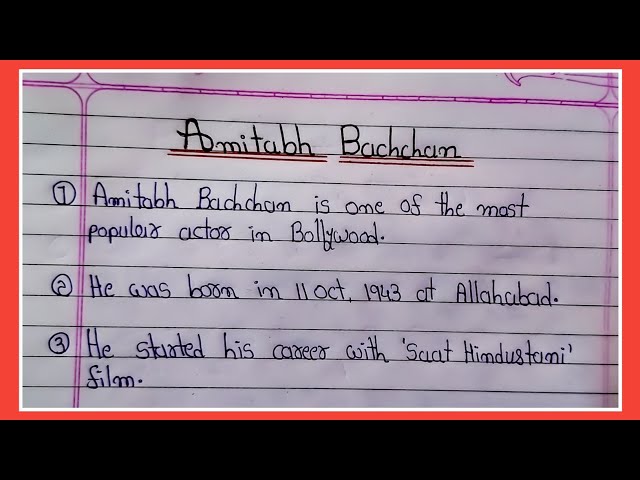 Amitabh Bachchan
① Amitabh Bachchan is one of the most
popular actor in Bollywood.
② He was born in 11 Oct, 1943 at Allahabad.
③ He started his career with 'Saat Hindustani'
film.